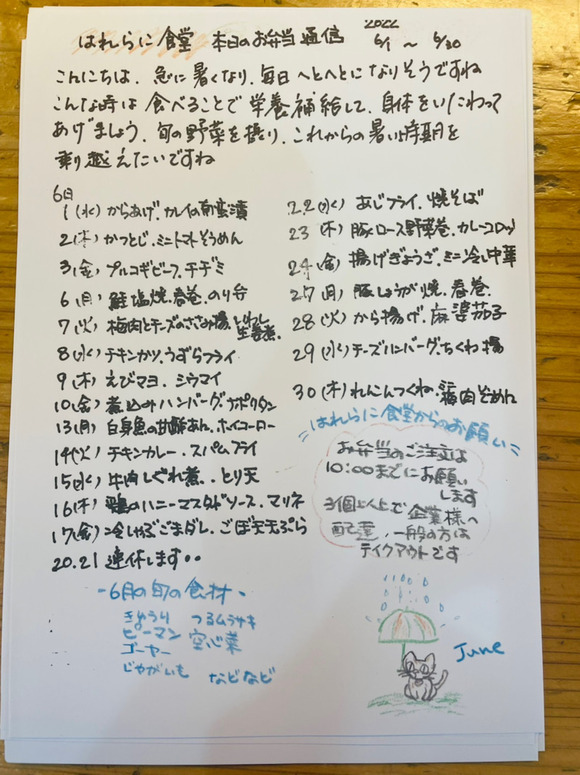 はれらに食堂 本日のお弁当通信 2022 6/1 〜 6/30
こんにちは、急に暑くなり、毎日へとへとになりそうですね
こんな時は食べることで栄養補給して、身体をいたわって
あげましょう、旬の野菜を摂り、これからの暑い時期を
乗り越えたいですね
6月
1(水) からあげ、カレイの南蛮漬
2(木) かつとじ、ミニトマトそうめん
3(金) プルコギビーフ、チヂミ
6(月) 鮭塩焼、春巻、のり弁
7(火) 梅肉とチーズのささみ揚、いわし生姜煮、
8(水) チキンカツ、うずらフライ
9(木) えびマヨ、シウマイ
10(金) 煮込みハンバーグ、ナポリタン
13(月) 白身魚の甘酢あん、ホイコーロー
14(火) チキンカレー、スパムフライ
15(水) 牛肉しぐれ煮、とり天
16(木) 鶏のハニーマスタードソース、マリネ
17(金) 冷しゃぶごまダレ、ごぼ天天ぷら
20.21 連休します..
22(水) あじフライ、焼そば
23(木) 豚ロース野菜巻、カレーコロッケ
24(金) 揚げぎょうざ、ミニ冷し中華
27(月) 豚しょうが焼、春巻
28(火) から揚げ、麻婆茄子
29(水) チーズハンバーグ、ちくわ揚
30(木) れんこんつくね、梅肉そうめん
はれらに食堂からのお願い
お弁当のご注文は
10:00までにお願い
します
3個以上で企業様へ
配達、一般の方は
テイクアウトです
-6月の旬の食材-
きゅうり つるムラサキ
ピーマン 空心菜
ゴーヤー
じゃがいも などなど
June